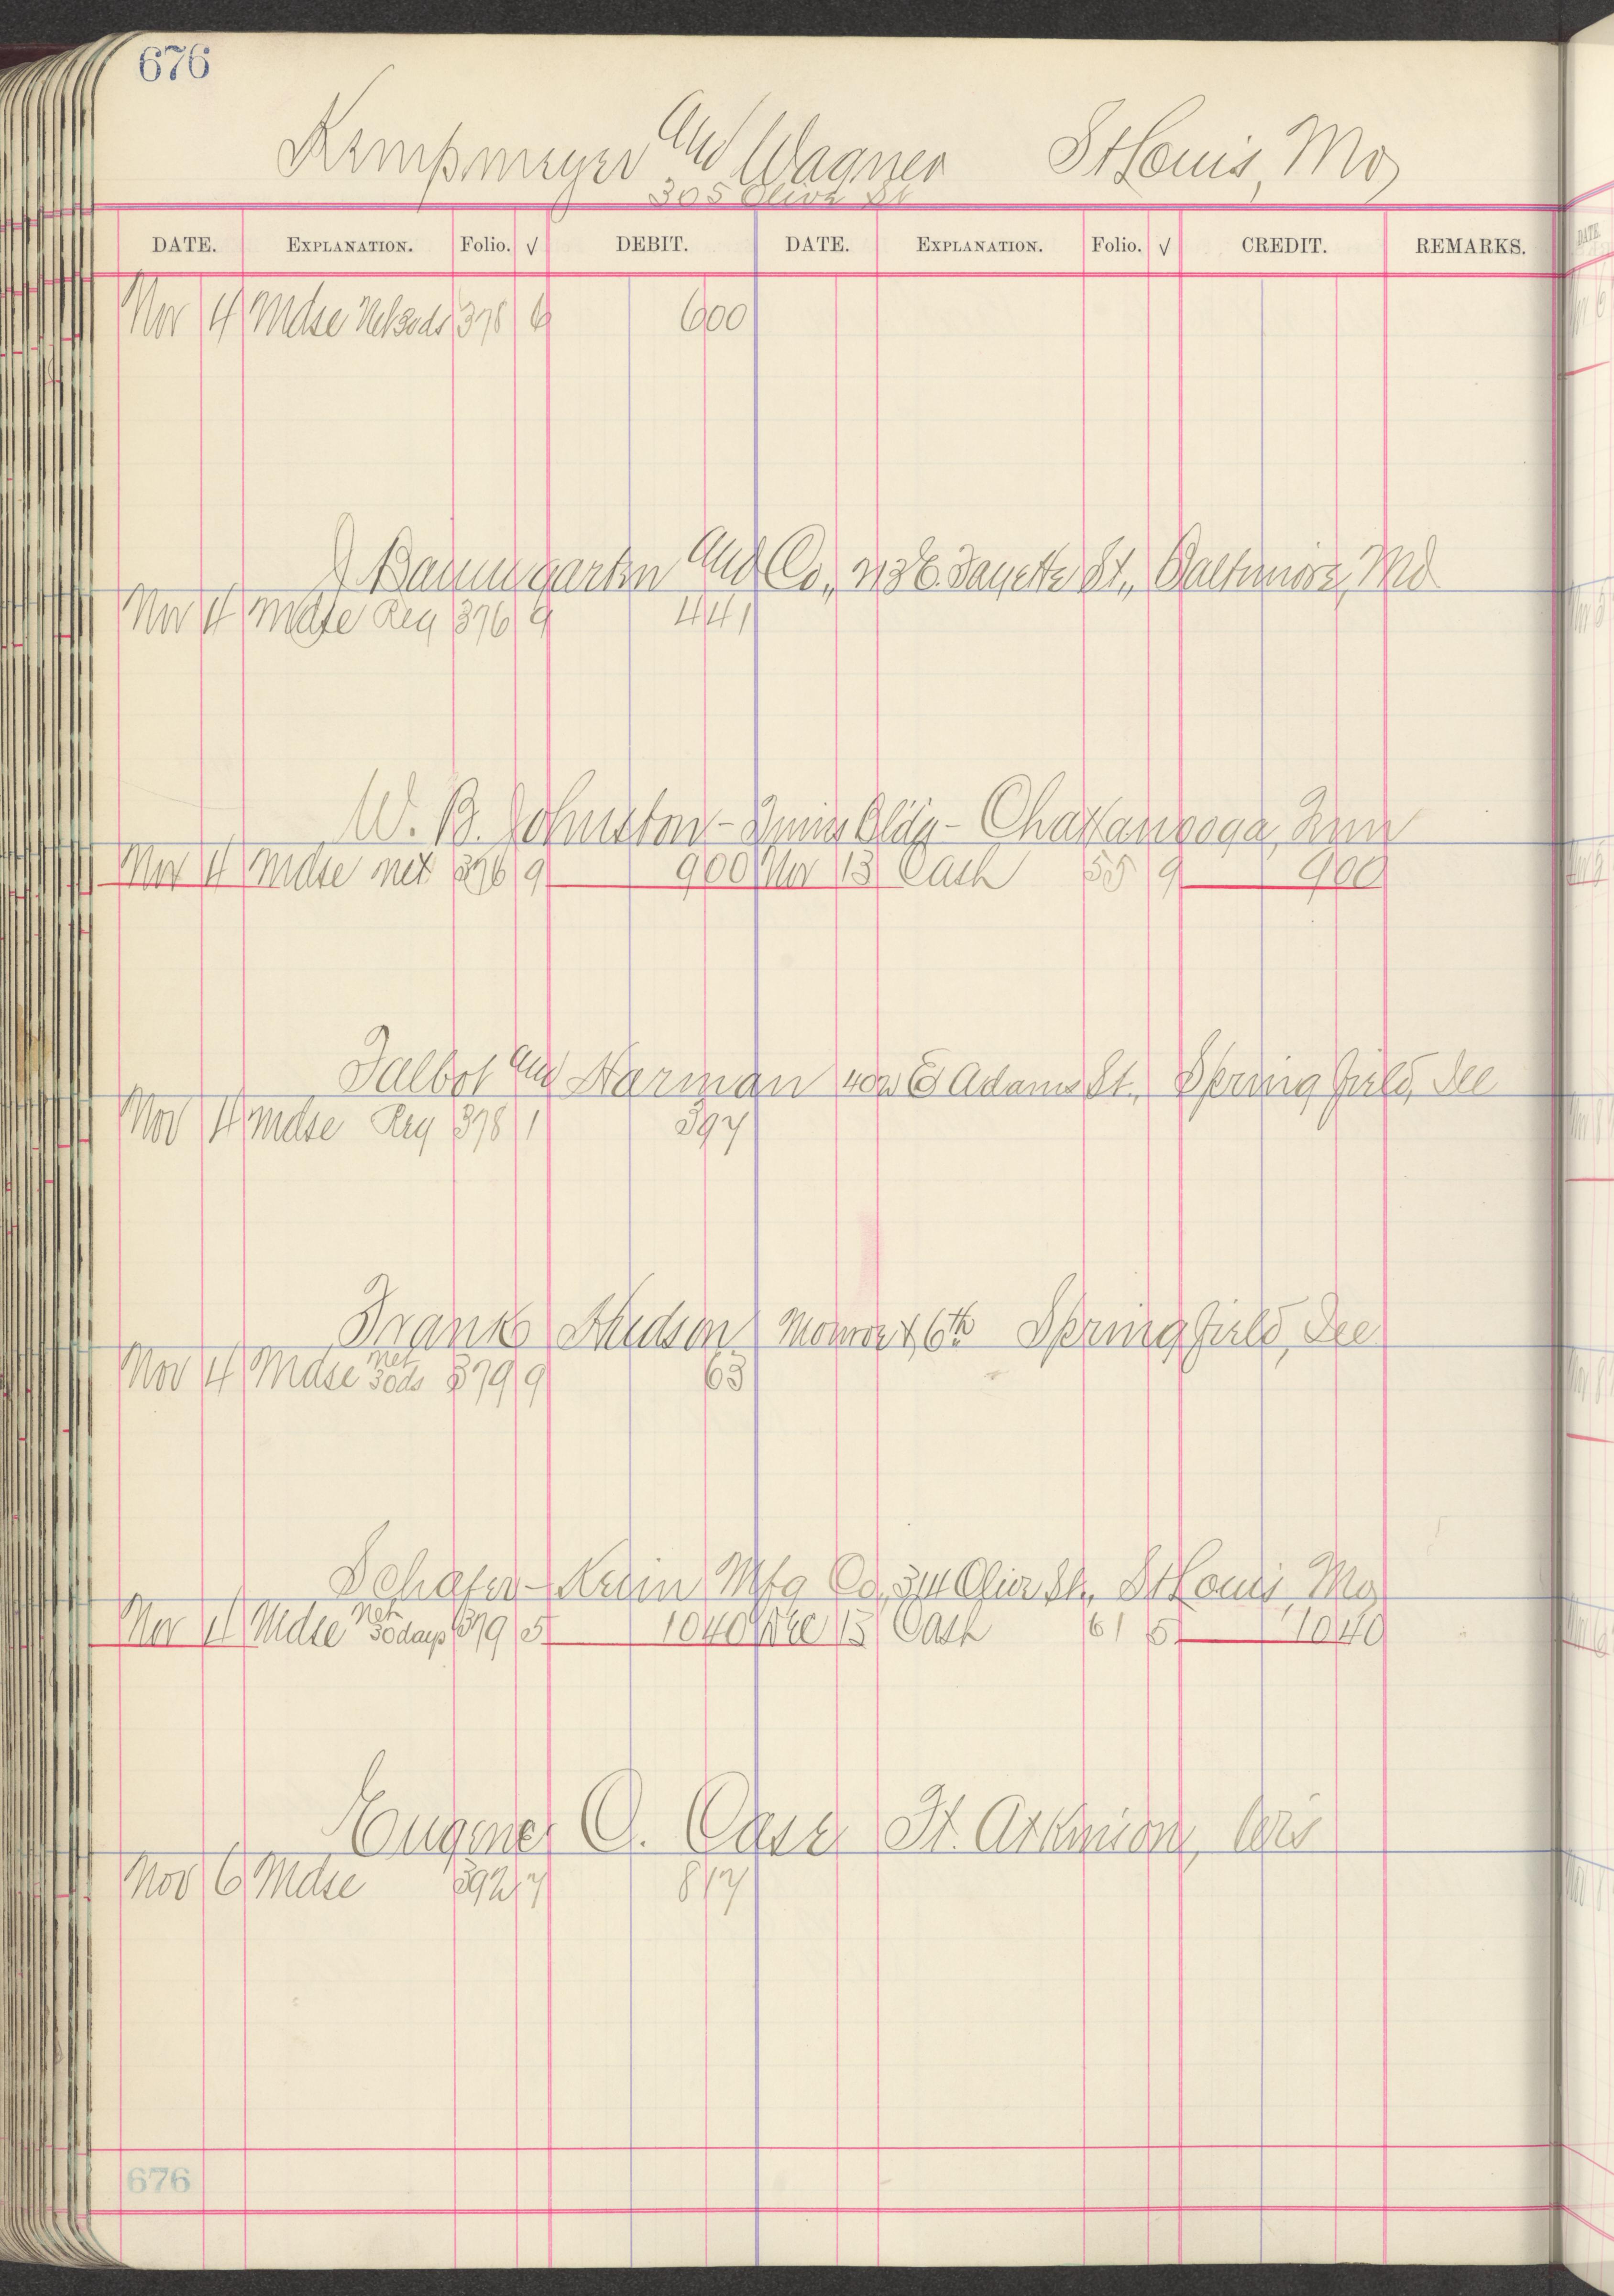 676
Kempmeyer and Wagner St Louis, Mo
305 Olive St
DATE. EXPLANATION. Folio. √ DEBIT. DATE. EXPLANATION. Folio. √ CREDIT. REMARKS.
Nov 4 Mdse Net 30ds 378 6 600
J Baumgarten and Co., E. Fayette St., Baltimore, Md
Nov 4 Mdse Reg 376 9 441
W. B. Johnston - Bldg - Chattanooga, Tenn
Nov 4 Mdse net 376 9 900 Nov 13 Cash 55 9 900
Talbot and Harman 402 E Adams St., Springfield, Ill
Nov 4 Mdse Reg 378 1 397
Frank Hudson Monroe & 6th Springfield, Ill
Nov 4 Mdse Net 30ds 379 9 63
Schafer - Mfg Co, 314 Olive St., St Louis, Mo
Nov 4 Mdse Net 30days 379 5 1040 Dec 15 Cash 61 5 1040
Eugene C. Case Ft. Atkinson, Wis
Nov 6 Mdse 392 7 817
676